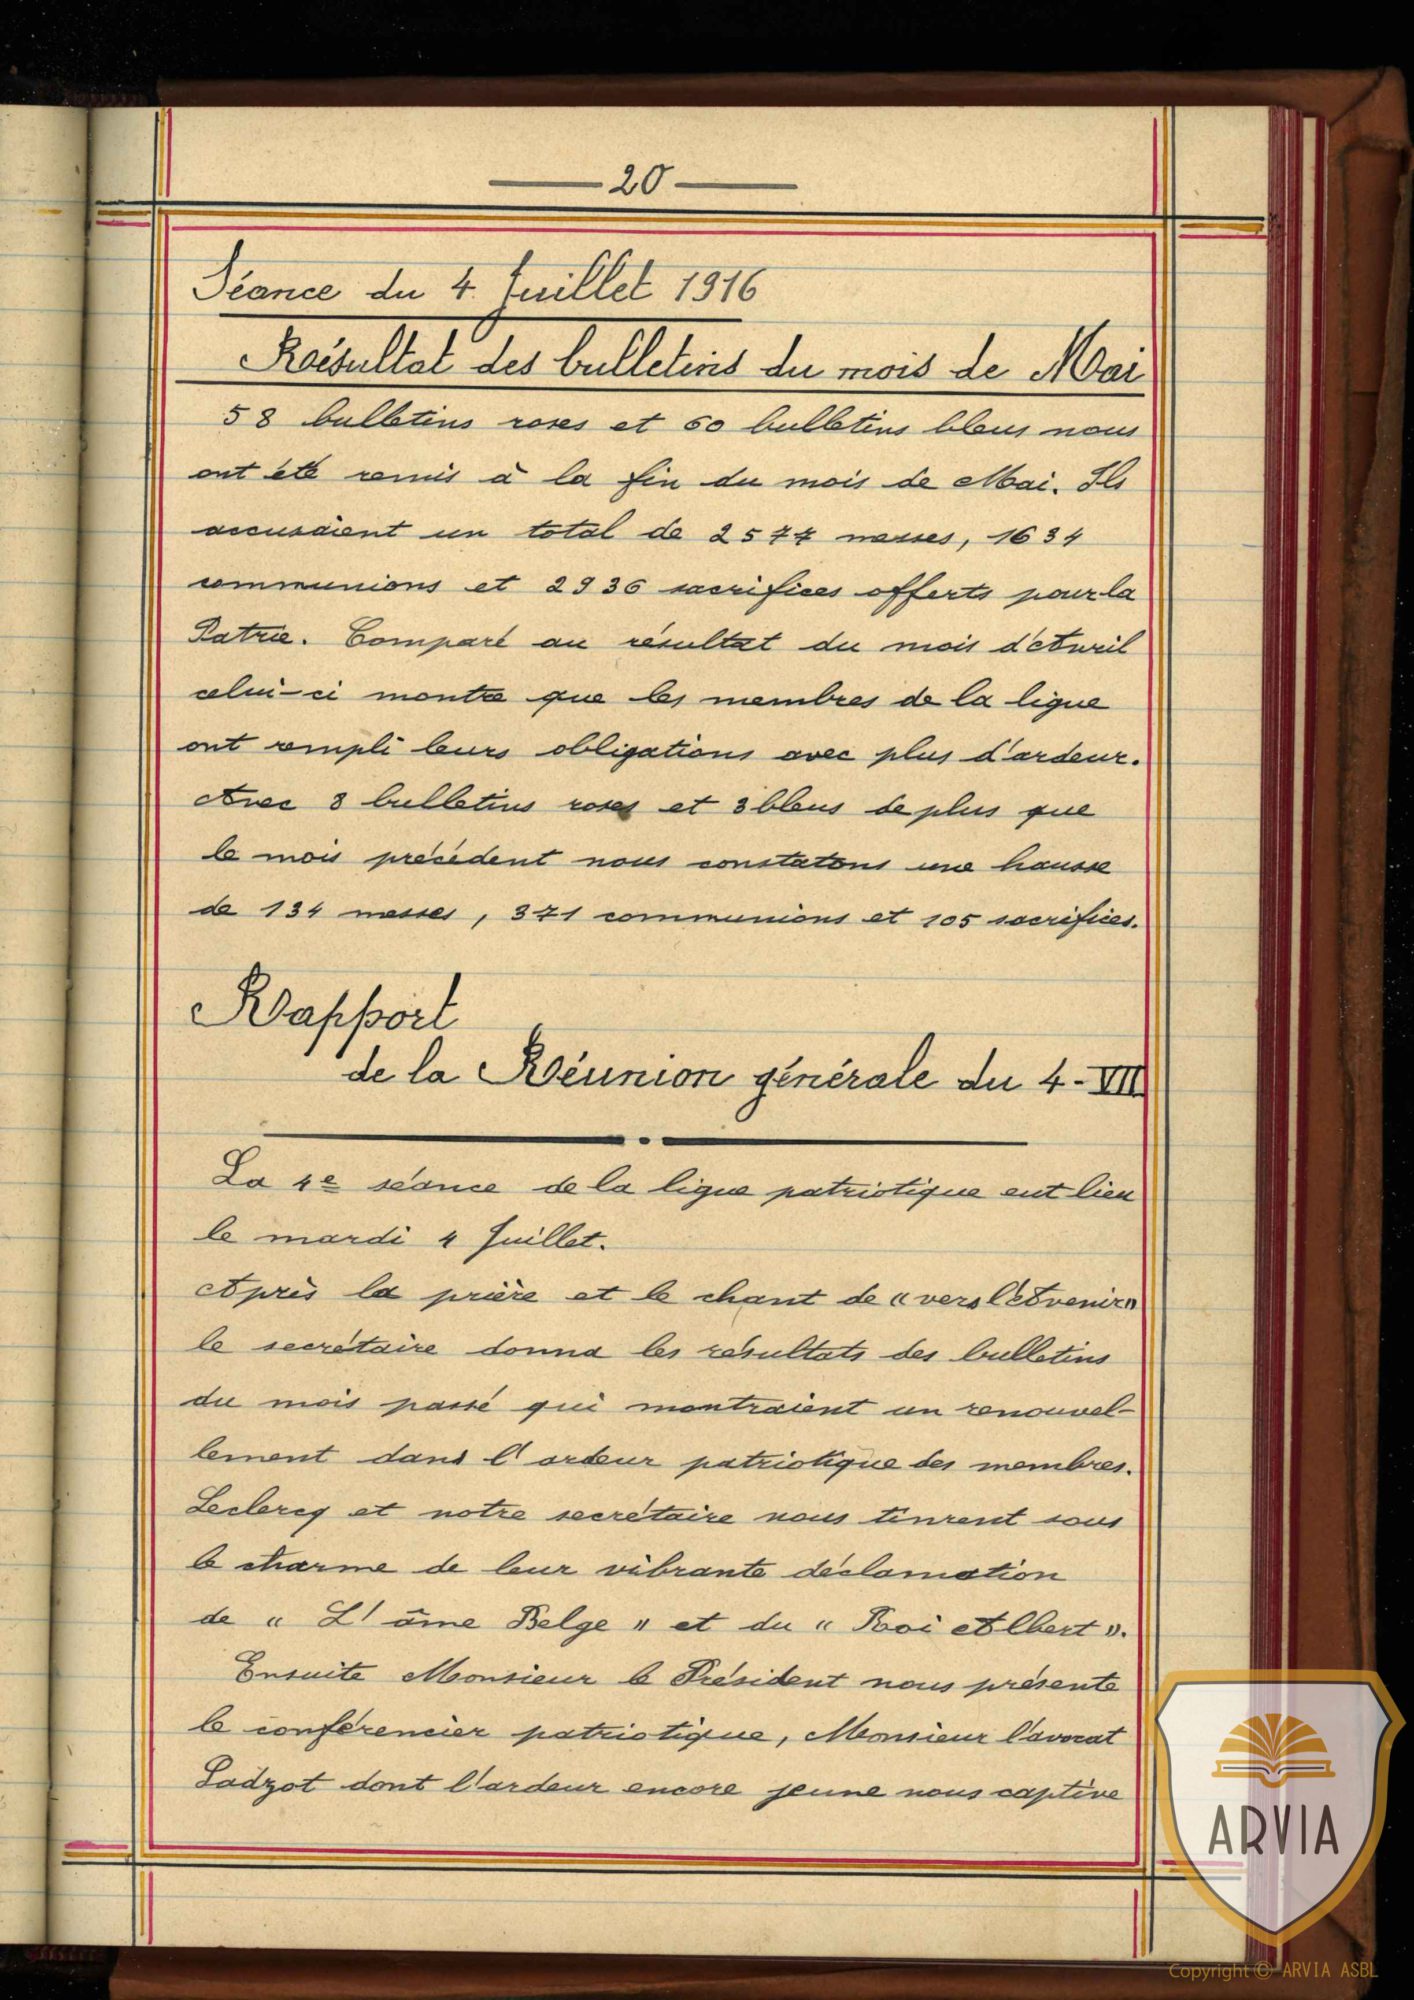 20
Séance du 4 Juillet 1916
Résultat des bulletins du mois de Mai
58 bulletins roses et 60 bulletins bleus nous
ont été remis à la fin du mois de Mai. Ils
accusaient un total de 2577 messes, 1634
communions et 2936 sacrifices offerts pour la
Patrie. Comparé au résultat du mois d'Avril
celui-ci montre que les membres de la ligue
ont rempli leurs obligations avec plus d'ardeur.
Avec 8 bulletins roses et 3 bleus de plus que
le mois précédent nous constatons une hausse
de 134 messes, 371 communions et 105 sacrifices.
Rapport
de la Réunion générale du 4-VII
La 4e séance de la ligue patriotique eut lieu
le mardi 4 Juillet.
Après la prière et le chant de « vers l'Avenir »
le secrétaire donna les résultats des bulletins
du mois passé qui montraient un renouvel-
lement dans l'ardeur patriotique des membres.
Leclercq et notre secrétaire nous tinrent sous
le charme de leur vibrante déclamation
de « L'âme Belge » et du « Roi Albert ».
Ensuite Monsieur le Président nous présente
le conférencier patriotique, Monsieur l'avocat
Ladzot dont l'ardeur encore jeune nous captive
ARVIA
Copyright © ARVIA ASBL